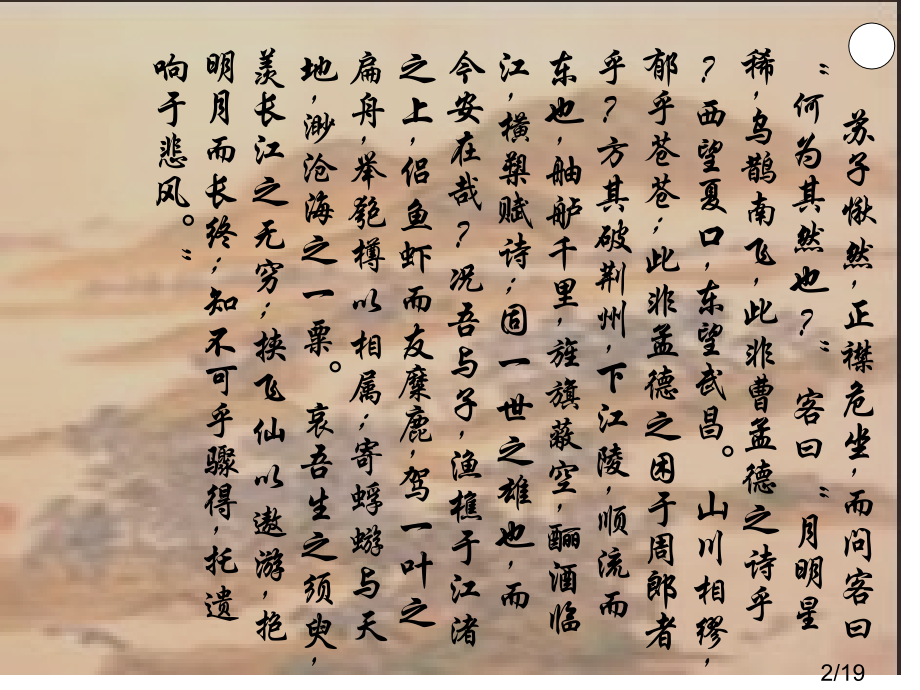 苏子愀然，正襟危坐，而问客曰
“何为其然也？”客曰“月明星
稀，乌鹊南飞，此非曹孟德之诗乎
？西望夏口，东望武昌。山川相缪，
郁乎苍苍；此非孟德之困于周郎者
乎？方其破荆州，下江陵，顺流而
东也，舳舻千里，旌旗蔽空，酾酒临
江，横槊赋诗；固一世之雄也，而
今安在哉？况吾与子，渔樵于江渚
之上，侣鱼虾而友麋鹿，驾一叶之
扁舟，举匏樽以相属；寄蜉蝣与天
地，渺沧海之一粟。哀吾生之须臾，
羡长江之无穷；挟飞仙以遨游，抱
明月而长终；知不可乎骤得，托遗
响于悲风。”
2/19